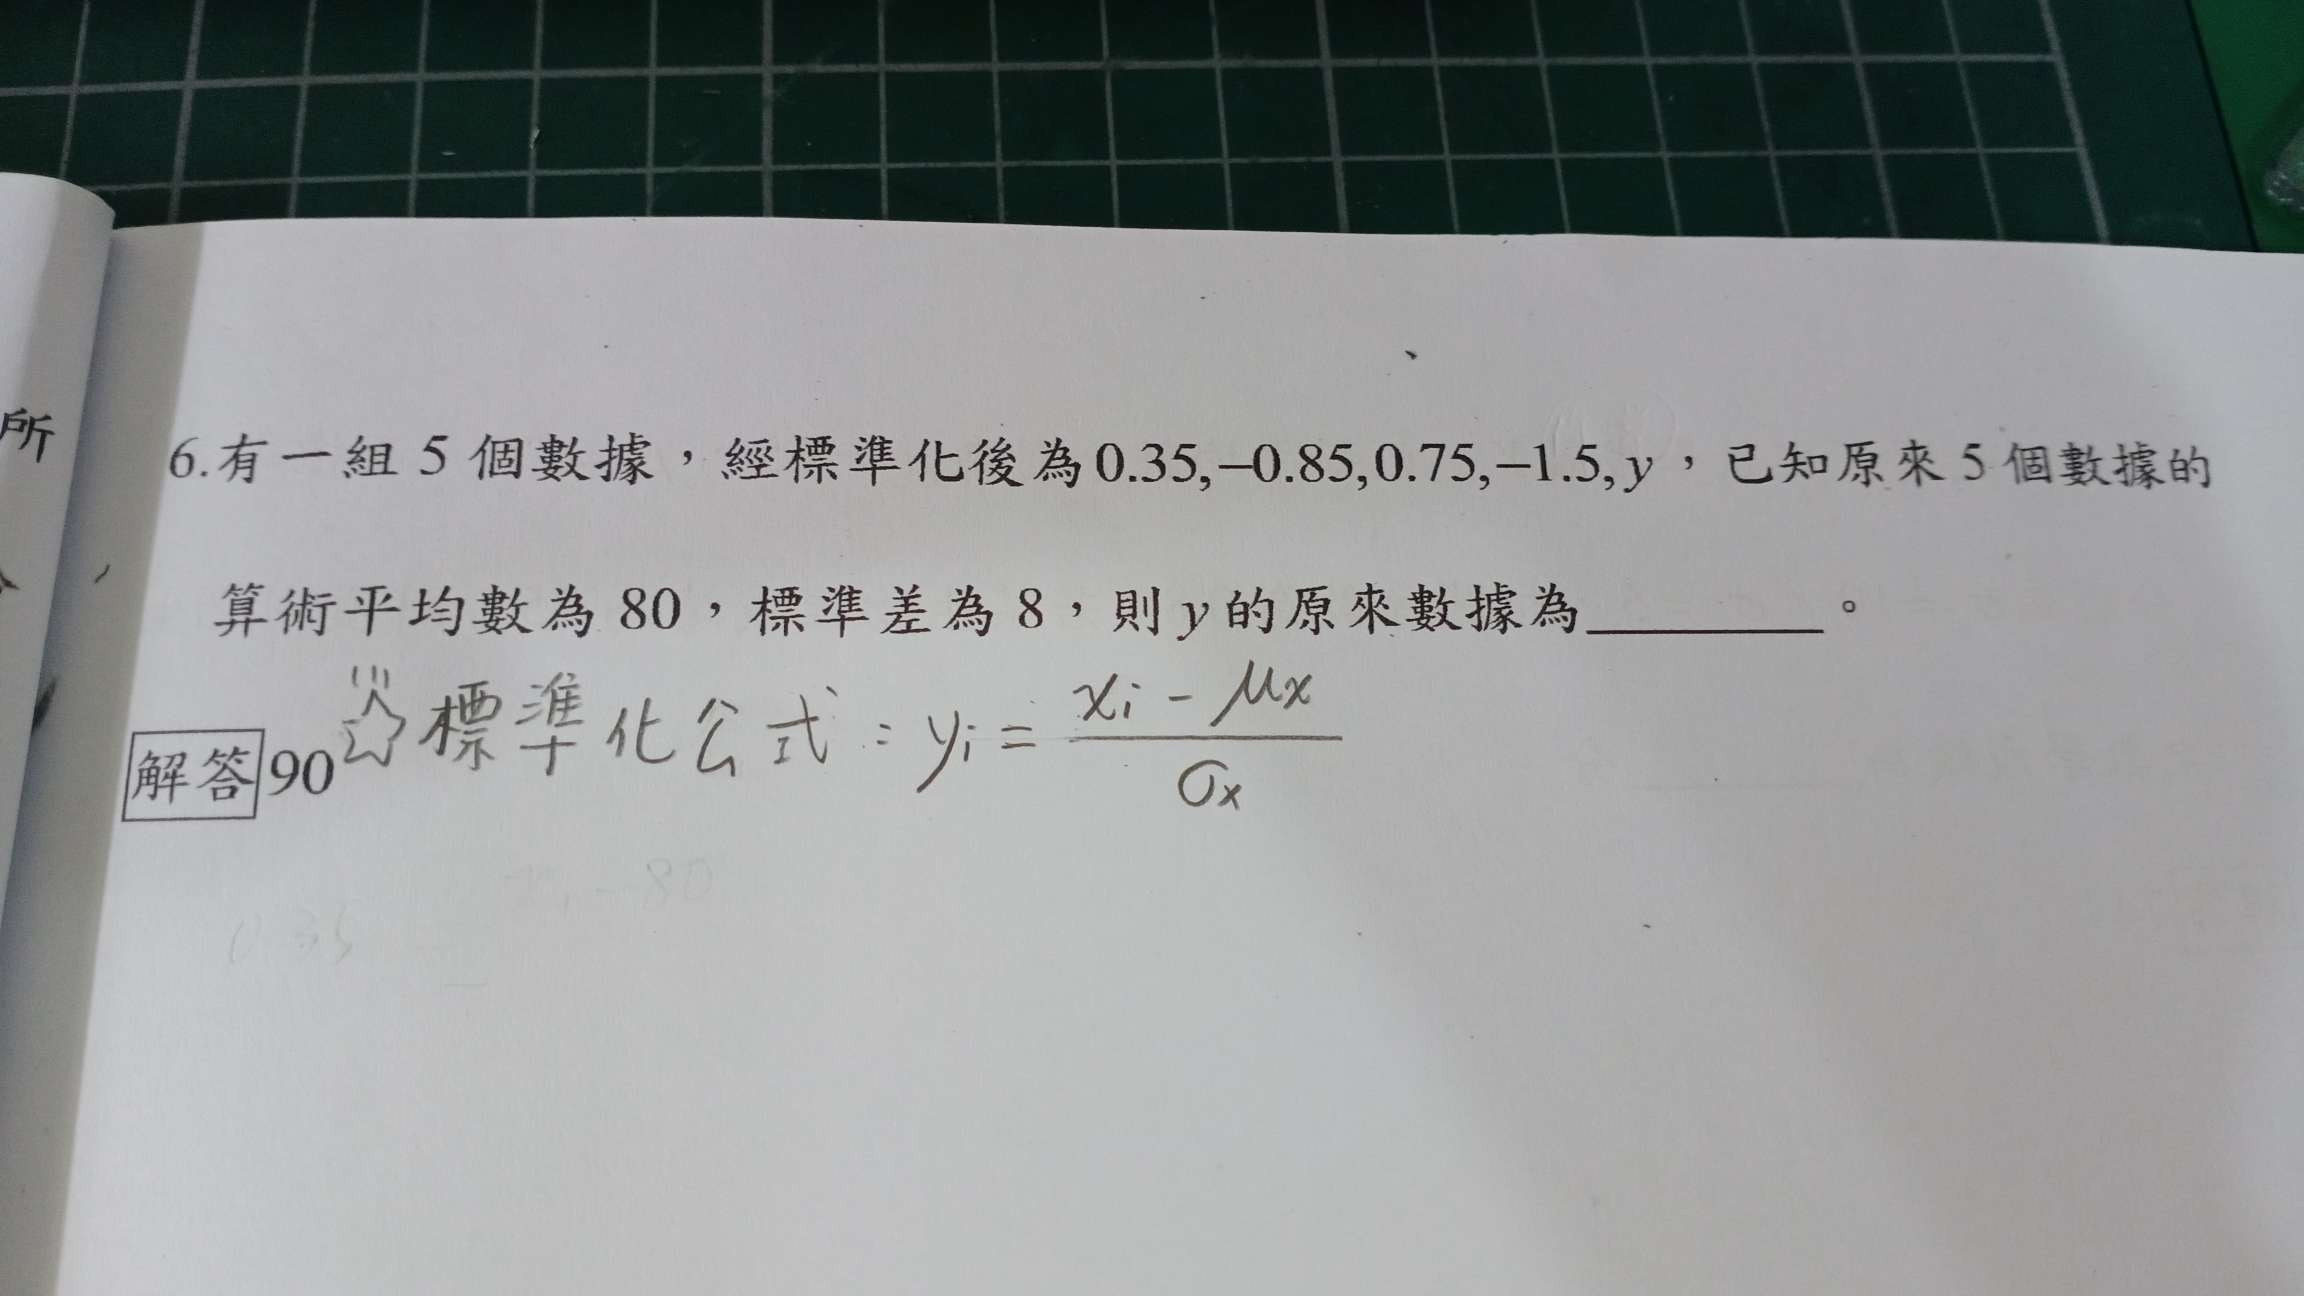 所
6.有一組 5 個數據，經標準化後為0.35,−0.85,0.75,−1.5,y，已知原來 5 個數據的
算術平均數為 80，標準差為 8，則y的原來數據為________。
標準化公式：yi = (xi − μx) / σx
解答 90
xi − 80
0.35